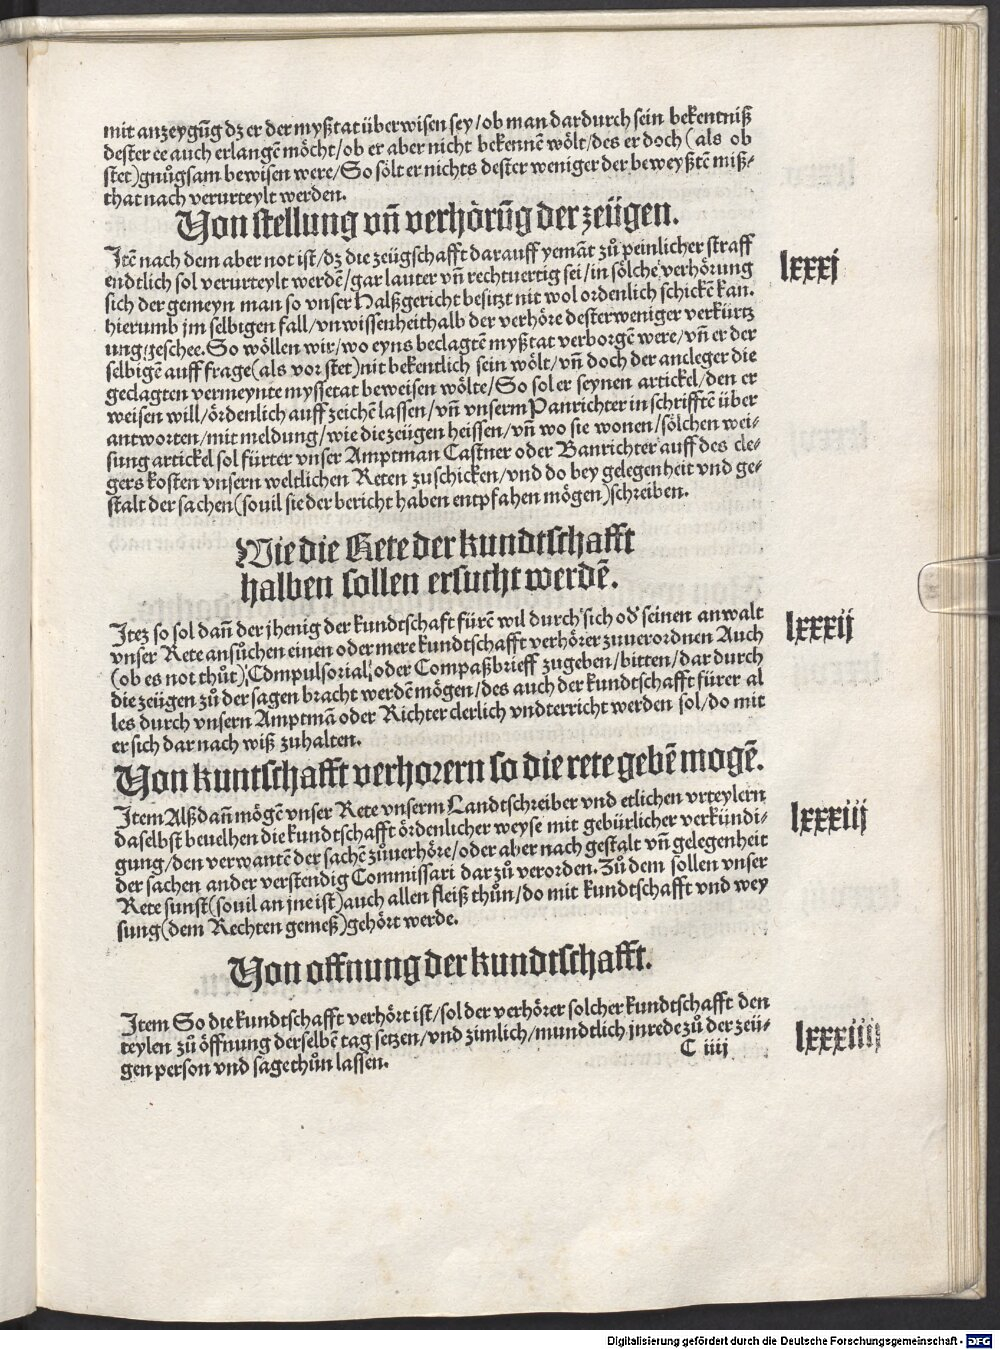 mit anzeygūg dz er der myßtat überwisen sey/ob man dardurch sein bekentniß
dester ee auch erlangē möcht/ob er aber nicht bekennē wölt/des er doch (als ob
stet)gnůgsam bewisen were/So sölt er nichts dester weniger der beweyßtē miß⸗
that nach verurteylt werden.
Von stellung vn̄ verhörūg der zeügen.
Itē nach dem aber not ist/dz die zeügschafft darauff yemāt zů peinlicher straff
lxxxj
endtlich sol verurteylt werdē/gar lauter vn̄ rechtuertig sei/in sölche verhörung
sich der gemeyn man so vnser Halßgericht besitzt nit wol ordenlich schickē kan.
hierumb jm selbigen fall/vnwissenheithalb der verhöre desterweniger verkürtz
ung/zeschee. So wöllen wir/wo eyns beclagtē myßtat verborgē were/vn̄ er der
selbigē auff frage(als vor stet)nit bekentlich sein wölt/vn̄ doch der ancleger die
geclagten vermeynte myssetat beweisen wölte/So sol er seynen artickel/den er
weisen will/ördenlich auff zeichē lassen/vn̄ vnserm Panrichter in schrifftē über
antworten/mit meldung/wie die zeügen heissen/vn̄ wo sie wonen/sölchen wei⸗
sung artickel sol fürter vnser Amptman Castner oder Banrichter auff des cle⸗
gers kosten vnsern weltlichen Reten zuschicken/vnd do bey gelegenheit vnd ge⸗
stalt der sachen(souil sie der bericht haben entpfahen mögen)schreiben.
Wie die Rete der kundtschafft
halben sollen ersucht werdē.
Itez so sol dan̄ der jhenig der kundtschaft fürē wil durch sich od' seinen anwalt
lxxxij
vnser Rete ansůchen einen oder mere kundtschafft verhörer zuuerordnen Auch
(ob es not thůt) Compulsorial oder Compaßbrieff zugeben/bitten/dar durch
die zeügen zů der sagen bracht werdē mögen/des auch der kundtschafft fürer al
les durch vnsern Amptmā oder Richter clerlich vndterricht werden sol/do mit
er sich dar nach wiß zuhalten.
Von kuntschafft verhorern so die rete gebē mogē.
Item Alßdan̄ mögē vnser Rete vnserm Landtschreiber vnd etlichen vrteylern
lxxxiij
daselbst beuelhen die kundtschafft ördenlicher weyse mit gebürlicher verkündi⸗
gung/den verwantē der sachē zůuerhöre/oder aber nach gestalt vn̄ gelegenheit
der sachen ander verstendig Commissari dar zů verorden. Zů dem sollen vnser
Rete sunst(souil an jne ist)auch allen fleiß thůn/do mit kundtschafft vnd wey
sung(dem Rechten gemeß)gehört werde.
Von offnung der kundtschafft.
Item So die kundtschafft verhört ist/sol der verhörer solcher kundtschafft den
lxxxiiij
teylen zů öffnung derselbē tag setzen/vnd zimlich/mundtlich jnrede zů der zeü⸗
gen person vnd sage thůn lassen.
C iiij
Digitalisierung gefördert durch die Deutsche Forschungsgemeinschaft - DFG